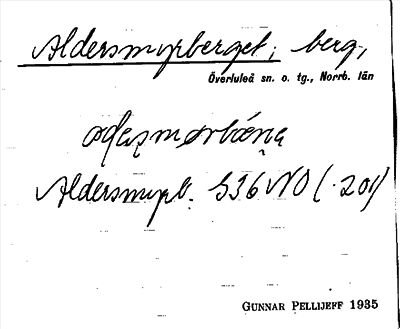 Aldersmyrberget; berg,
Överluleå sn. o. tg., Norrb. län
Aldersmyrb. S36 NO (.201)
GUNNAR PELLIJEFF 1935